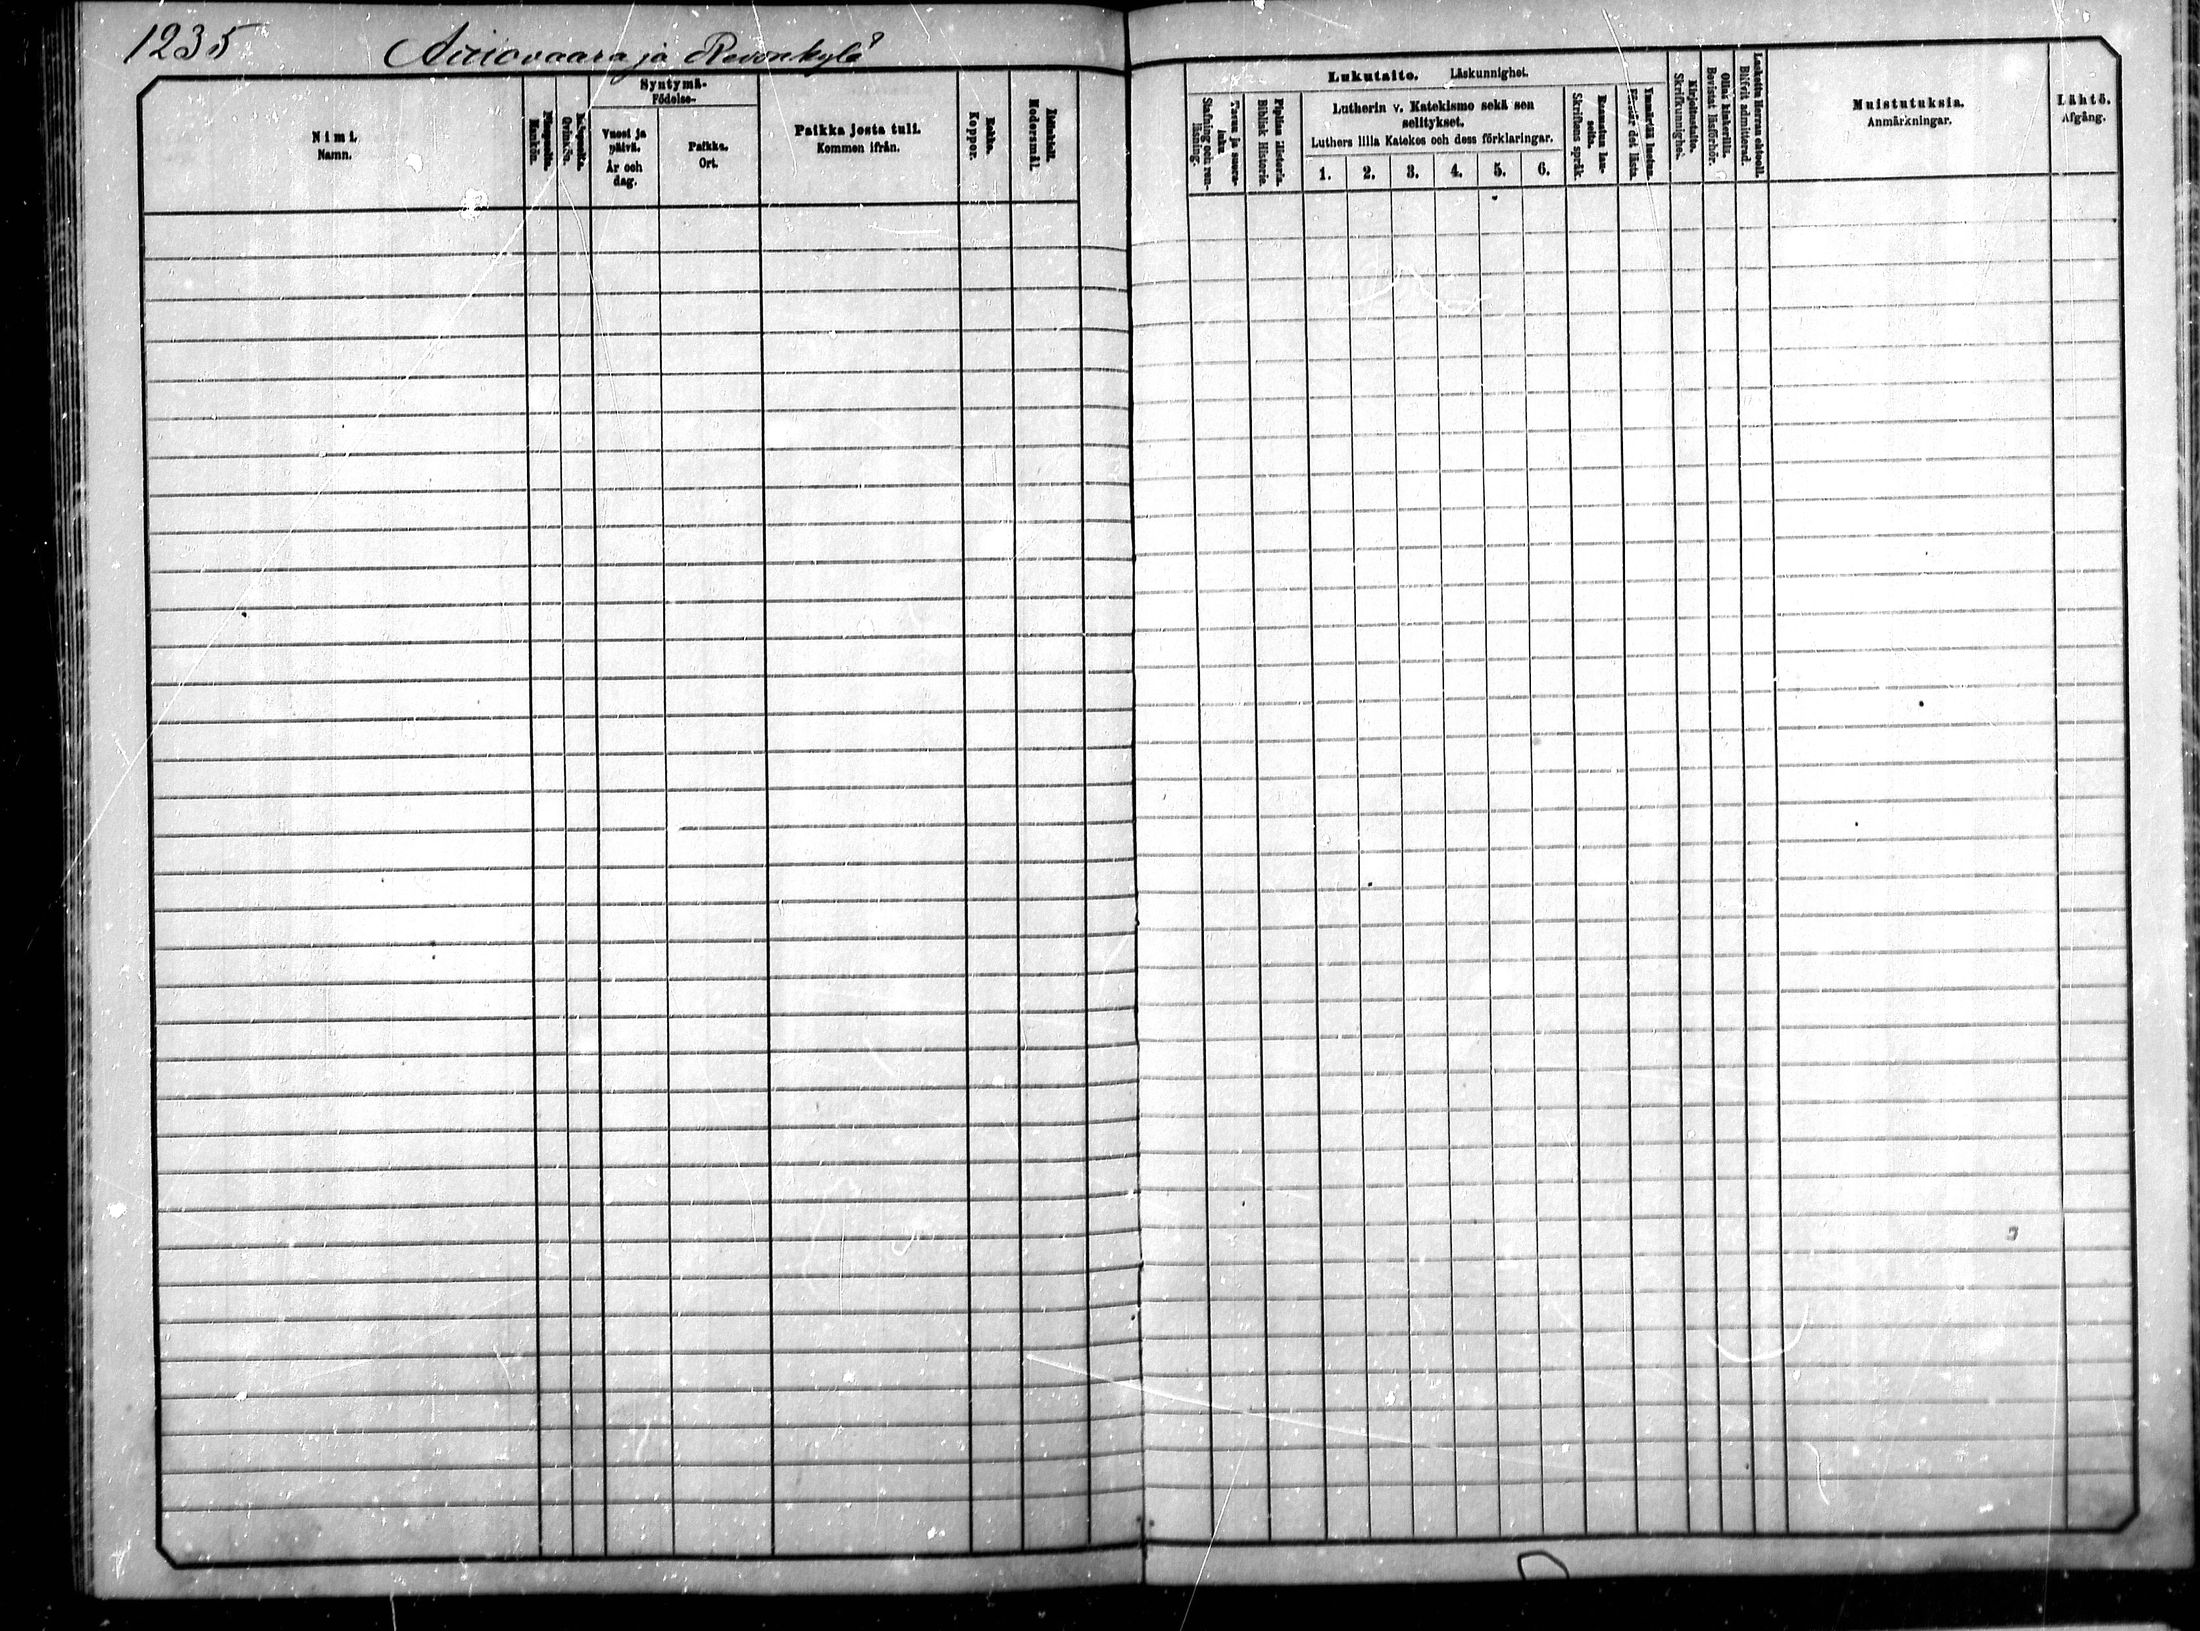 1235
Aittovaara ja Revonkylä
Syntymä-
Födelse-
Nimi.
Namn.
Miespuolia.
Mankön.
Naispuolia.
Qvinkön.
Vuosi ja
päivä.
År och
dag.
Paikka.
Ort.
Paikka josta tuli.
Kommen ifrån.
Rokko.
Koppor.
Äidinkieli.
Modersmål.
Lukutaito. Läskunnighet.
Tavuu ja suora-
luku
Stafning och ren-
läsning.
Piplian Historia.
Biblisk Historie.
Lutherin v. Katekismo sekä sen
selitykset.
Luthers lilla Katekes och dess förklaringar.
1. 2. 3. 4. 5. 6.
Raamatun lau-
seita.
Skriftens språk.
Ymmärtää luetun.
Förstår det lästa.
Kirjoitustaito.
Skrifkunnighet.
Ollut kinkerillä.
Bevistat läsförhör.
Laskettu Herran ehtooll.
Blifvit admitterad.
Muistutuksia.
Anmärkningar.
Lähtö.
Afgång.